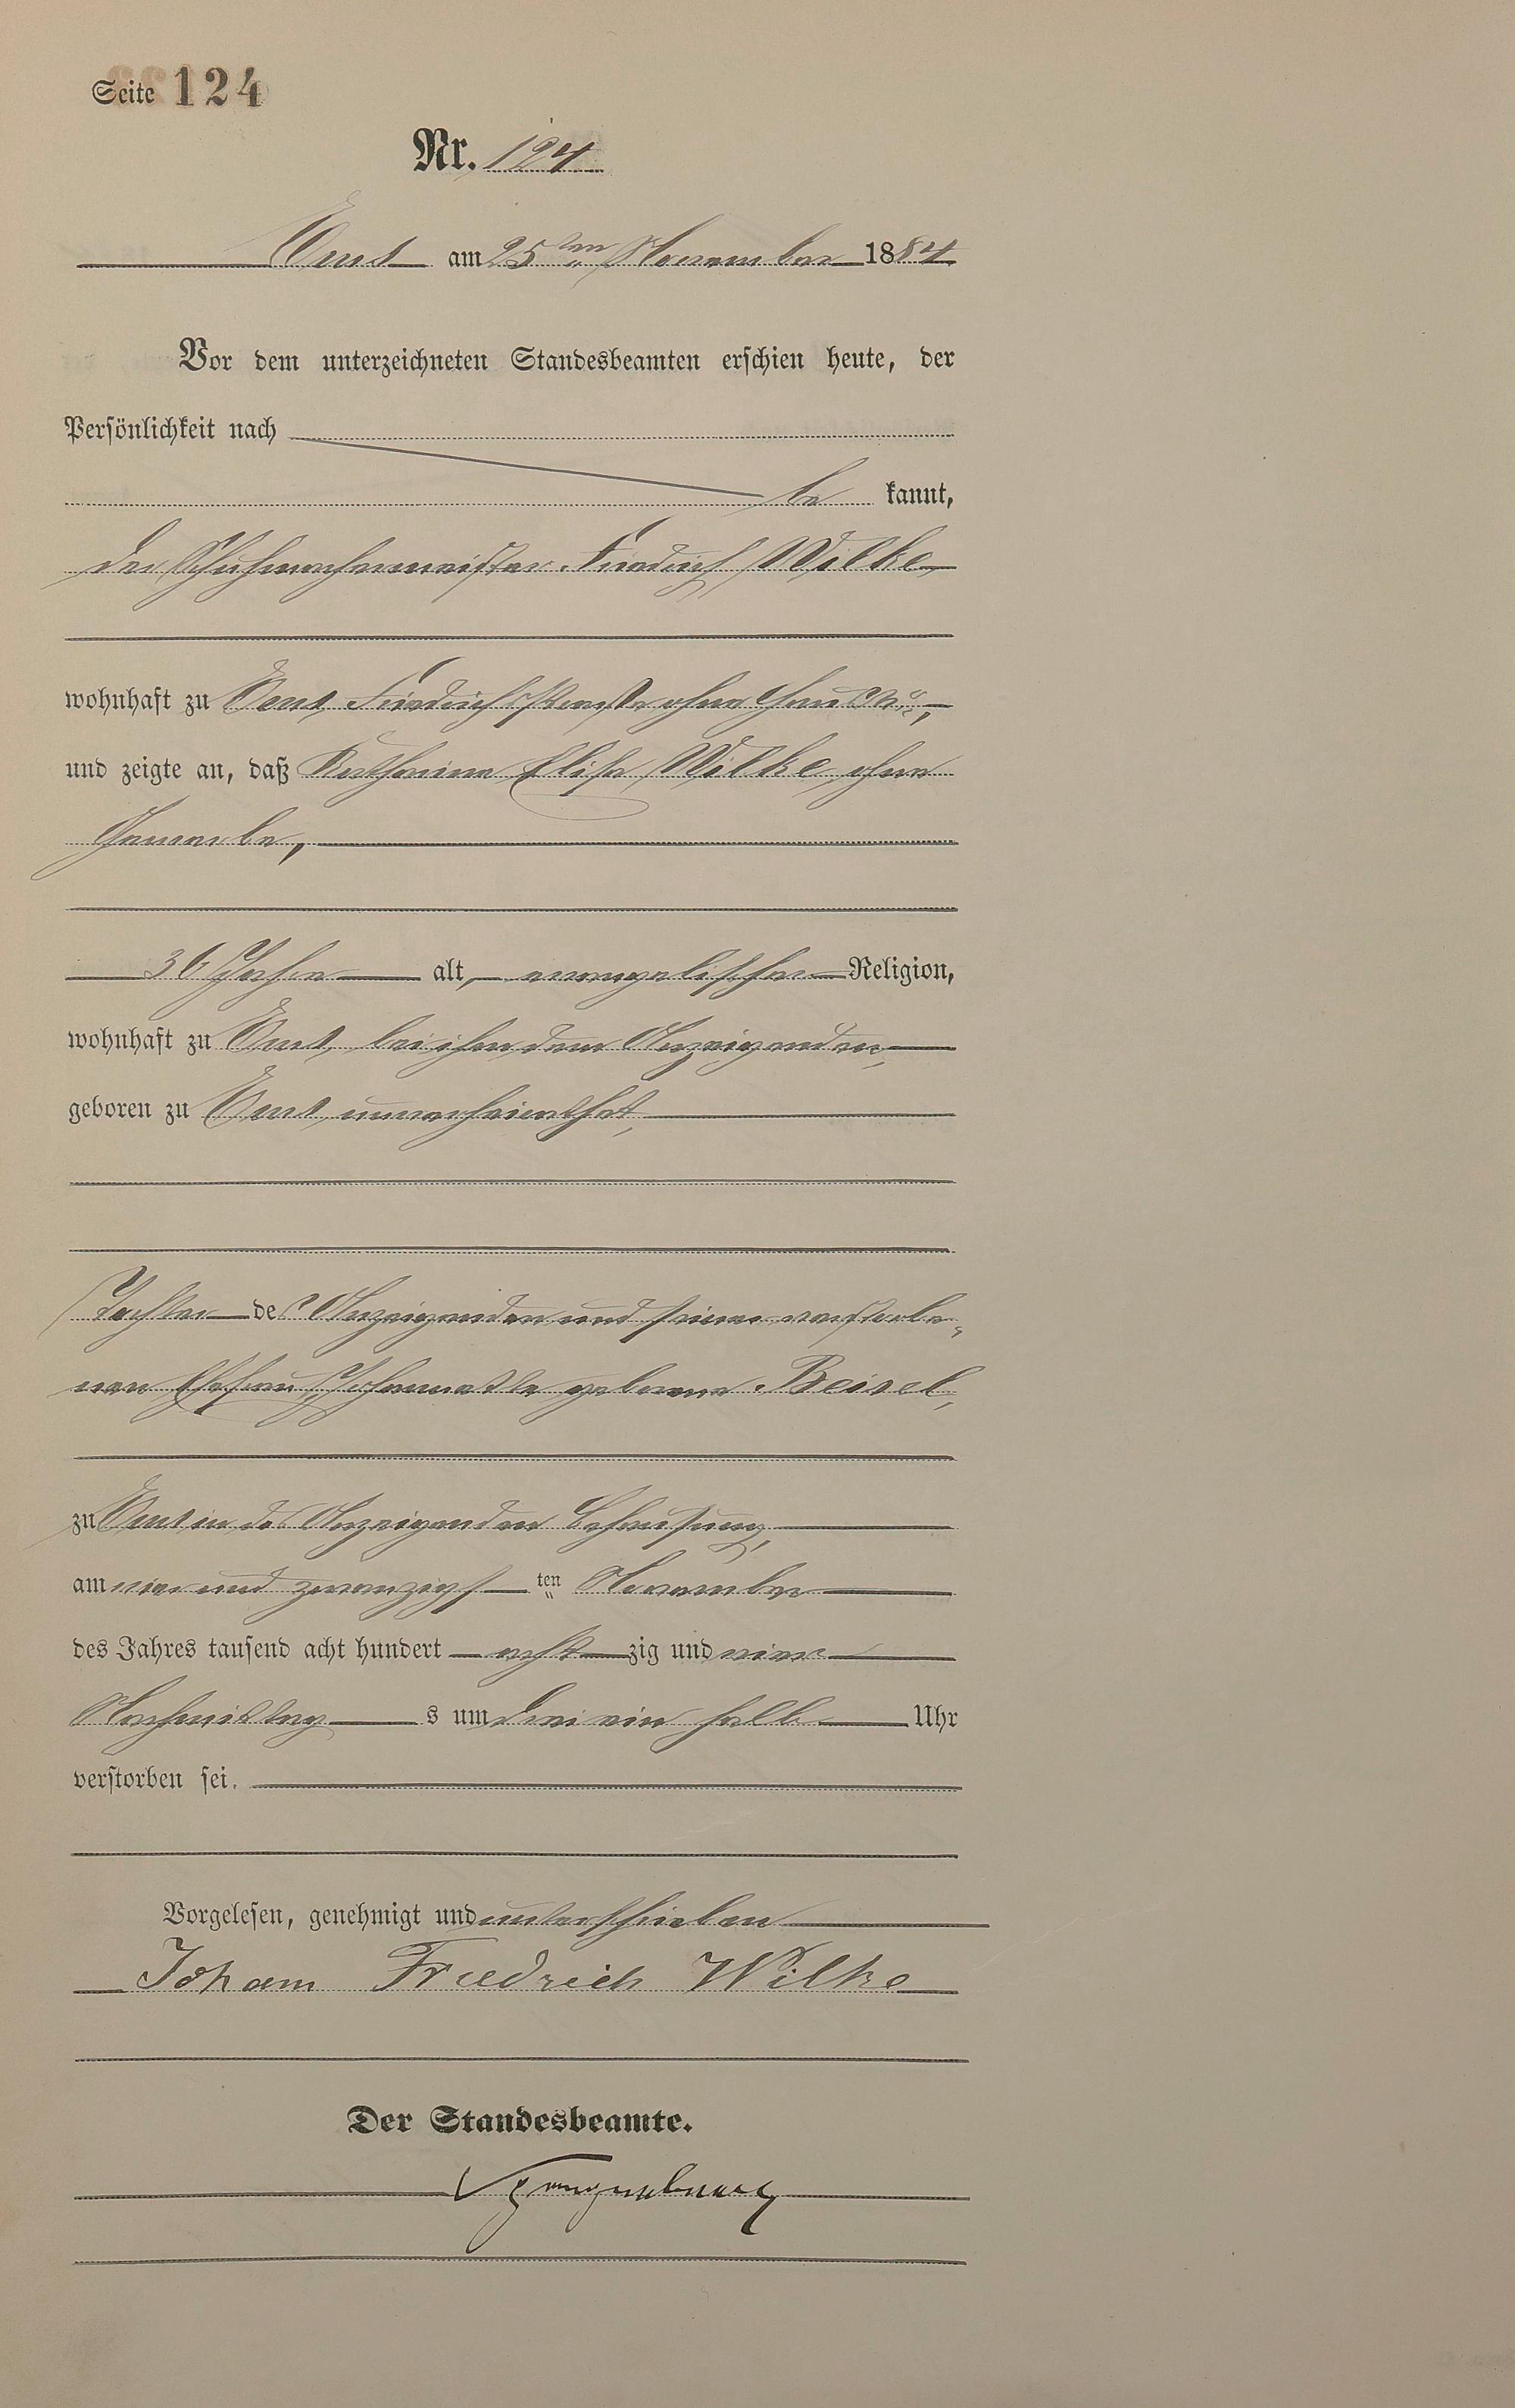 Seite 124
Nr. 124
Ems am 25ten November 1884.
Vor dem unterzeichneten Standesbeamten erschien heute, der
Persönlichkeit nach
be kannt,
der Schuhmachermeister Friedrich Wilke
wohnhaft zu Ems, Friedrichstraße ohne
und zeigte an, daß Katharina Elisa Wilke, ohne
Gewerbe,
36 Jahre alt, evangelischer Religion,
wohnhaft zu Ems, bei ihm dem Anzeigenden,
geboren zu Ems, unverheirathet,
Tochter des Anzeigenden und seiner verstorbe-
nen Ehefrau geborene Beisel,
zu Ems in des Anzeigenden Behausung,
am vier und zwanzigst ten November
des Jahres tausend acht hundert acht zig und vier
Nachmittag s um drei ein halb Uhr
verstorben sei.
Vorgelesen, genehmigt und unterschrieben
Johann Friedrich Wilke
Der Standesbeamte.